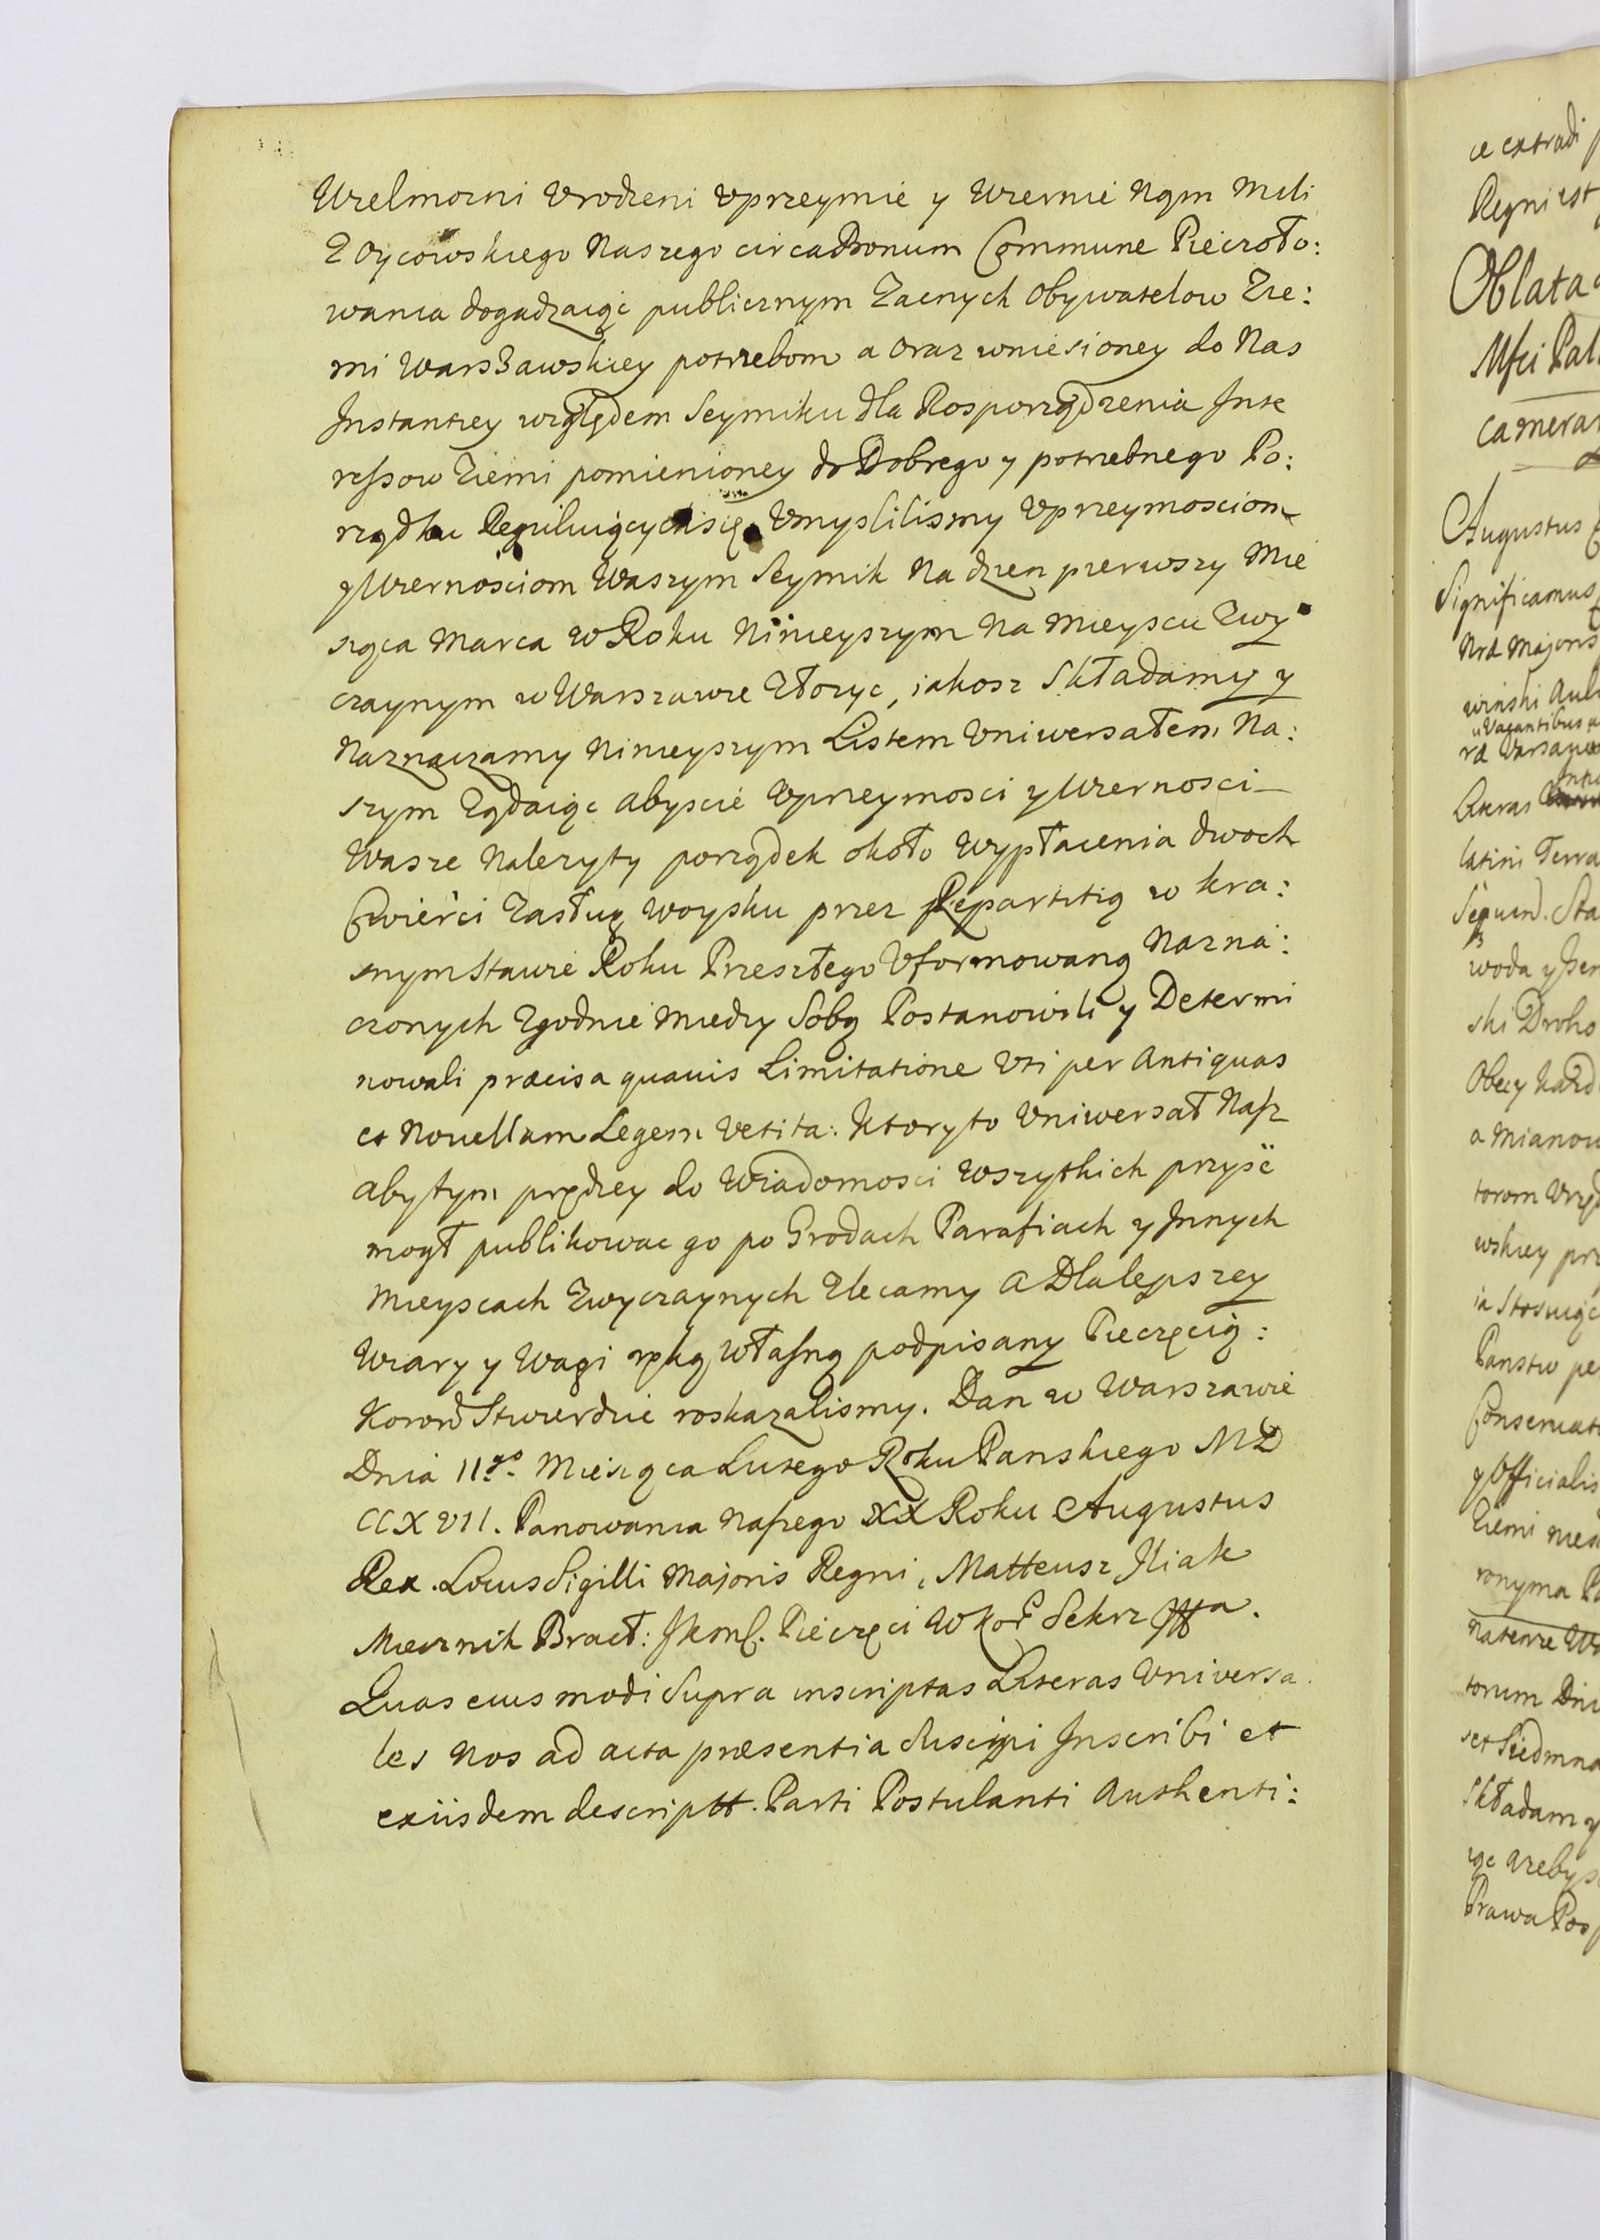 Wielmozni Vrodzeni Vprzeymie y Wiernie Nąm Mili
Z Oycowskiego Naszego circa Bonum Commune Pieczoło:
wania dogadzaiąc publicznym Zacnych Obywatelow Zie:
mi Warszawskiey potrzebom a oraz wniesioney do Nas
Instantiey względem Seymiku dla Rosporządzenia Inte
ressow Ziemi pomienioney do Dobrego y potrzebnego Po:
rządku Reguluiących się Vmyslilismy Vprzeymosciom
y Wiernosciom Waszym Seymik Na dzien pierwszy Mie
siąca Marca w Roku Ninieyszym Na Mieyscu Zwy
czaynym w Warszawie Złozyc, iakosz Składamy y
Naznaczamy Ninieyszym Listem Vniwersałem Na:
szym Ządaiąc abyscie Vprzeymosci y Wiernosci
Wasze Nalezyty porządek około Wypłacenia dwoch
Cwierci Zasług Woysku przez Repartitią w kra:
snymstawie Roku Przeszłego Vformowaną Nazna:
czonych Zgodnie Miedzy Sobą Postanowili y Determi
nowali præcisa quavis Limitatione Vti per Antiquas
et Novellam Legem Vetita: Ktoryto Vniwersał Nasz
aby tym prędzey do Wiadomosci Wszytkich przysć
mogł publikowac go po Grodach Parafiach y Innych
Mieyscach Zwyczaynych Zlecamy a Dla lepszey
Wiary y Wagi ręką Własną podpisany Pieczęcią:
Koron Stwierdzic roskazalismy. Dan w Warszawie
Dnia 11go Miesiąca Lutego Roku Panskiego MD
CCXVII. Panowania Naszego XX Roku Augustus
Rex. Locus Sigilli Majoris Regni, Matteusz Iliak
Miecznik Bracł: Jkmś. Pieczęci W Kor Sekrz
Quas eius modi supra inscriptas Literas Vniversa
les Nos ad acta præsentia suscipi Inscribi et
exiisdem descriptt. Parti Postulanti Authenti:
æ extradi
Regni est
Oblata
Mści Pal
Camerar
Augustus
Significamus
Nræ Majoris
winski Aul
Vacantibus
ræ Varsavien
Literas
latini Terra
Sequen. Sta
woda y
ski Droho
Obecy kazd
a mianow
torom Vrzę
wskiey prz
ia Stosuiąc
Panstw pe
Conservat
y Officialis
Ziemi
ronyma Po
natenze W
torum Dni
set Siedmna
Składam y
iąc azebys
Prawa Posp